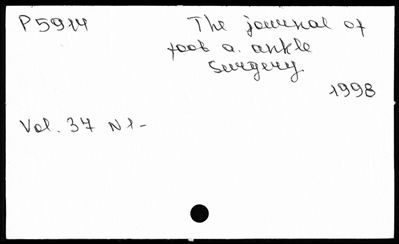 P5914 The journal of
foot a. ankle
surgery.
1998
Vol. 37 N1-